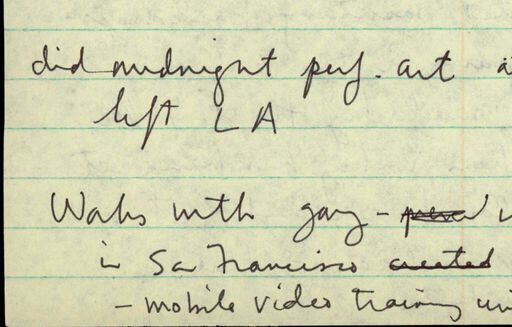 did midnight perf. art a
left LA
Works with gay -
in San Francisco created
- mobile video training uni